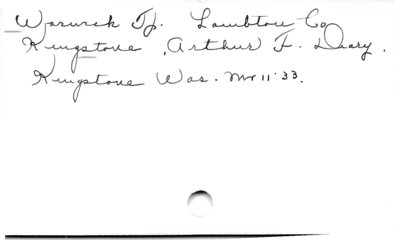 Warwick Tp. Lambton Co
Kingstone, Arthur F. Diary.
Kingstone Was. Mr 11 '33.